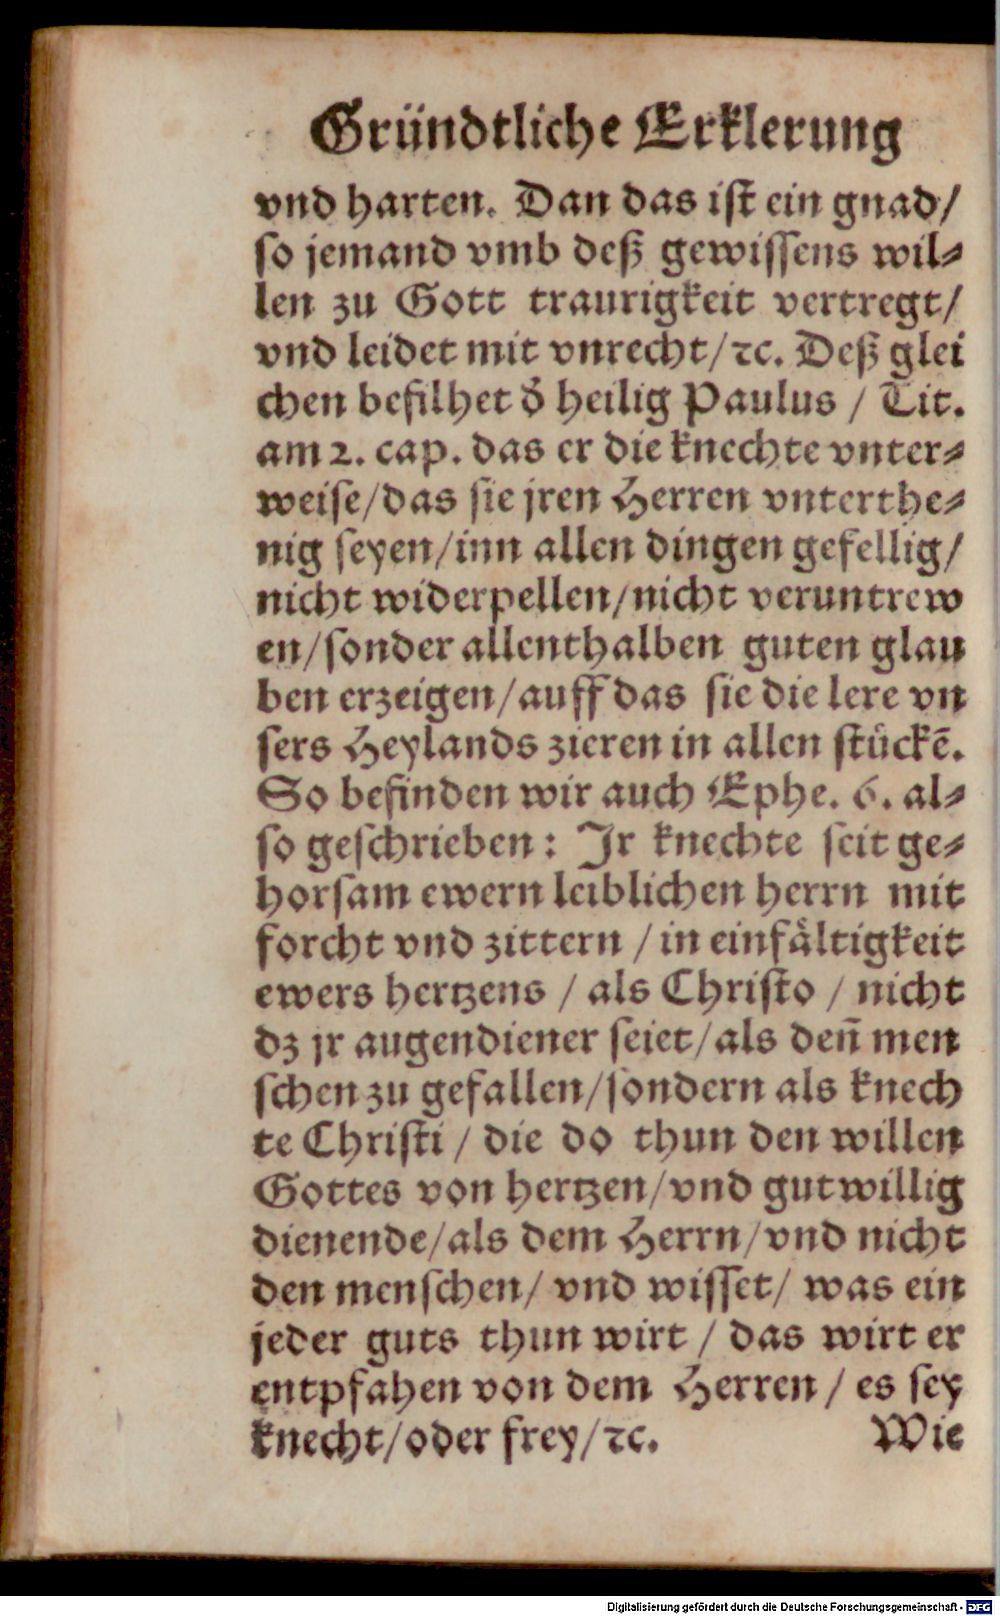 Gründtliche Erklerung
vnd harten. Dan das ist ein gnad/
so jemand vmb deß gewissens wil⸗
len zu Gott traurigkeit vertregt/
vnd leidet mit vnrecht/ꝛc. Deß glei
chen befilhet d̾ heilig Paulus / Tit.
am 2. cap. das er die knechte vnter⸗
weise/das sie jren Herren vnterthe⸗
nig seyen/inn allen dingen gefellig/
nicht widerpellen/nicht veruntrew
en/sonder allenthalben guten glau
ben erzeigen/auff das sie die lere vn
sers Heylands zieren in allen stückē.
So befinden wir auch Ephe. 6. al⸗
so geschrieben: Jr knechte seit ge⸗
horsam ewern leiblichen herrn mit
forcht vnd zittern / in einfältigkeit
ewers hertzens / als Christo / nicht
dz jr augendiener seiet/als den̄ men
schen zu gefallen/sondern als knech
te Christi / die do thun den willen
Gottes von hertzen/vnd gutwillig
dienende/als dem Herrn/vnd nicht
den menschen/ vnd wisset/ was ein
jeder guts thun wirt / das wirt er
entpfahen von dem Herren / es sey
knecht/oder frey/ꝛc. Wie
Digitalisierung gefördert durch die Deutsche Forschungsgemeinschaft - DFG